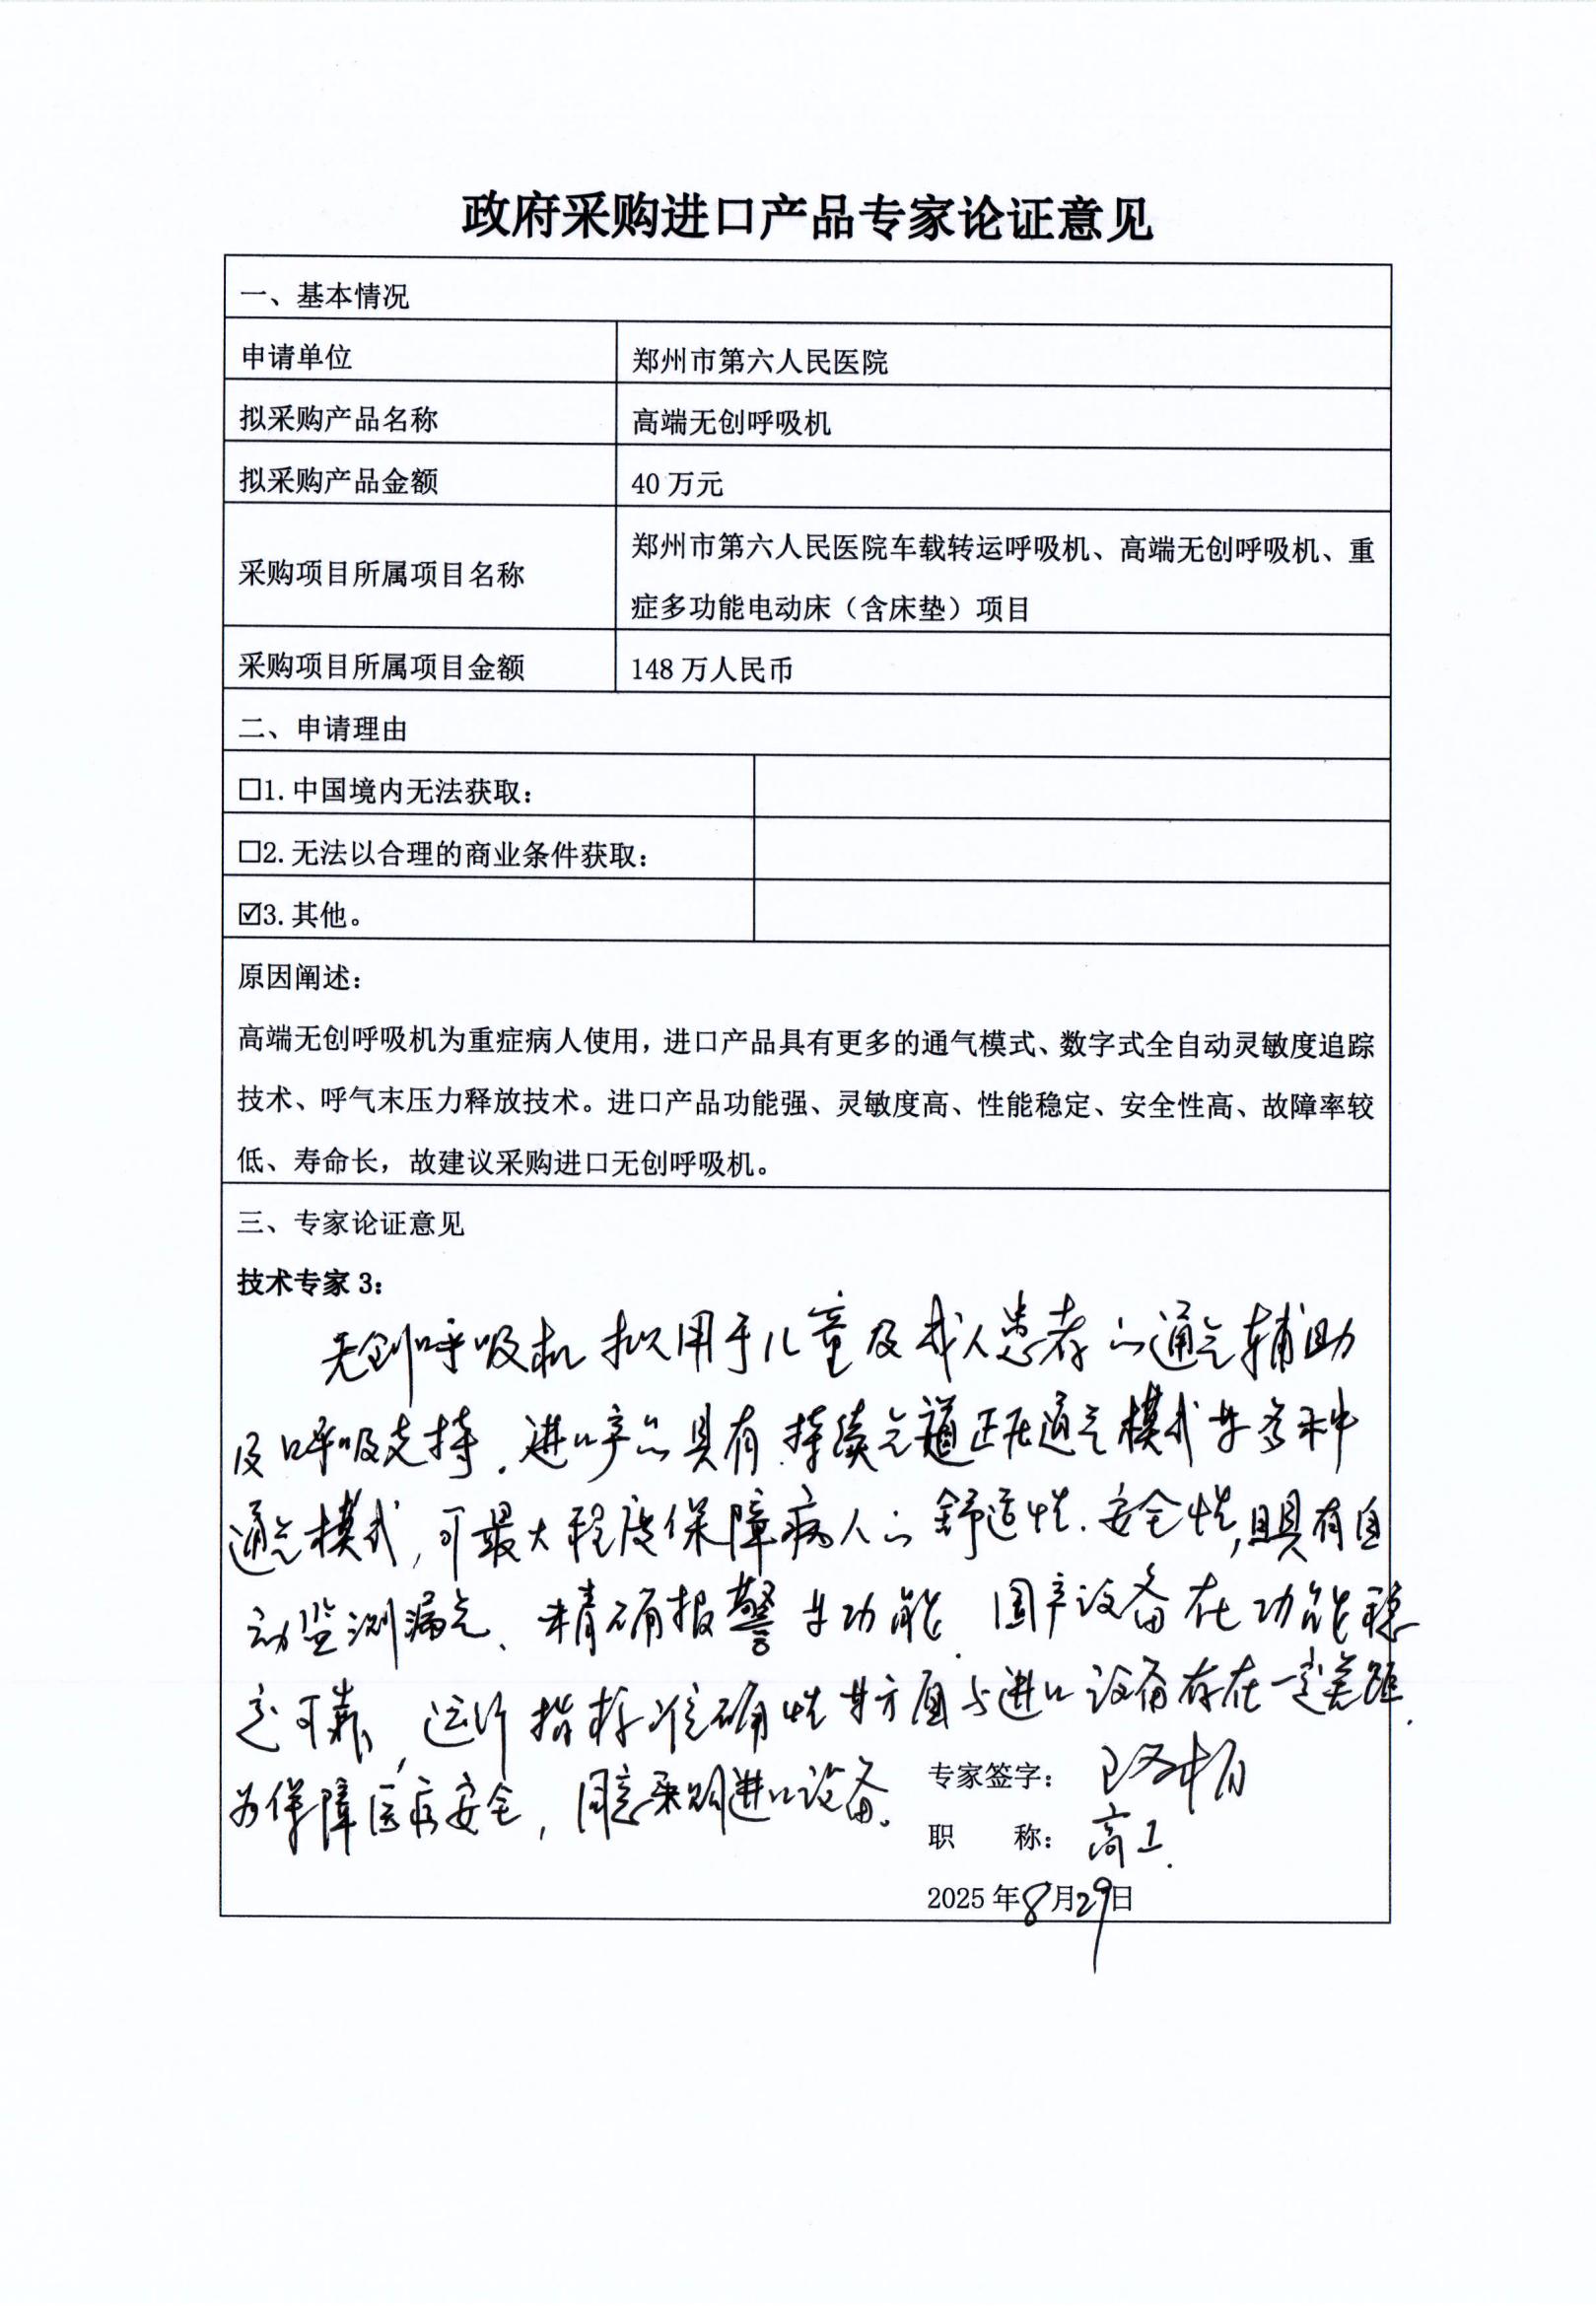 政府采购进口产品专家论证意见
一、基本情况
申请单位 郑州市第六人民医院
拟采购产品名称 高端无创呼吸机
拟采购产品金额 40 万元
采购项目所属项目名称 郑州市第六人民医院车载转运呼吸机、高端无创呼吸机、重
症多功能电动床（含床垫）项目
采购项目所属项目金额 148 万人民币
二、申请理由
☐1. 中国境内无法获取：
☐2. 无法以合理的商业条件获取：
☑3. 其他。
原因阐述：
高端无创呼吸机为重症病人使用，进口产品具有更多的通气模式、数字式全自动灵敏度追踪
技术、呼气末压力释放技术。进口产品功能强、灵敏度高、性能稳定、安全性高、故障率较
低、寿命长，故建议采购进口无创呼吸机。
三、专家论证意见
技术专家 3：
无创呼吸机拟用于儿童及成人患者的通气辅助
及呼吸支持。进口产品具有持续气道正压通气模式等多种
通气模式，可最大程度保障病人的舒适性、安全性，且具有自
动监测漏气、精确报警等功能。国产设备在功能稳
定可靠，运行指标准确性等方面与进口设备存在一定差距。
为保障医疗安全，同意采购进口设备。
专家签字：
职 称：高工.
2025 年8月29日